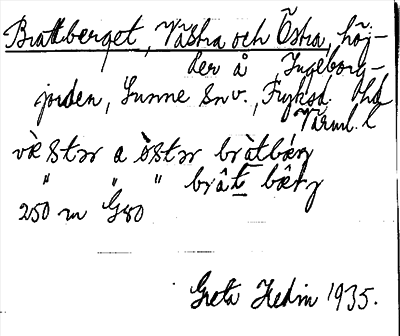 Brattberget, Västra och Östra, höj-
der å Ingeborg-
jorden, Sunne snv., Fryksd. hd
Värml. l
vὲstər a östər bràtbærg
" " " brât bærg
250 m G80
Greta Hedin 1935.